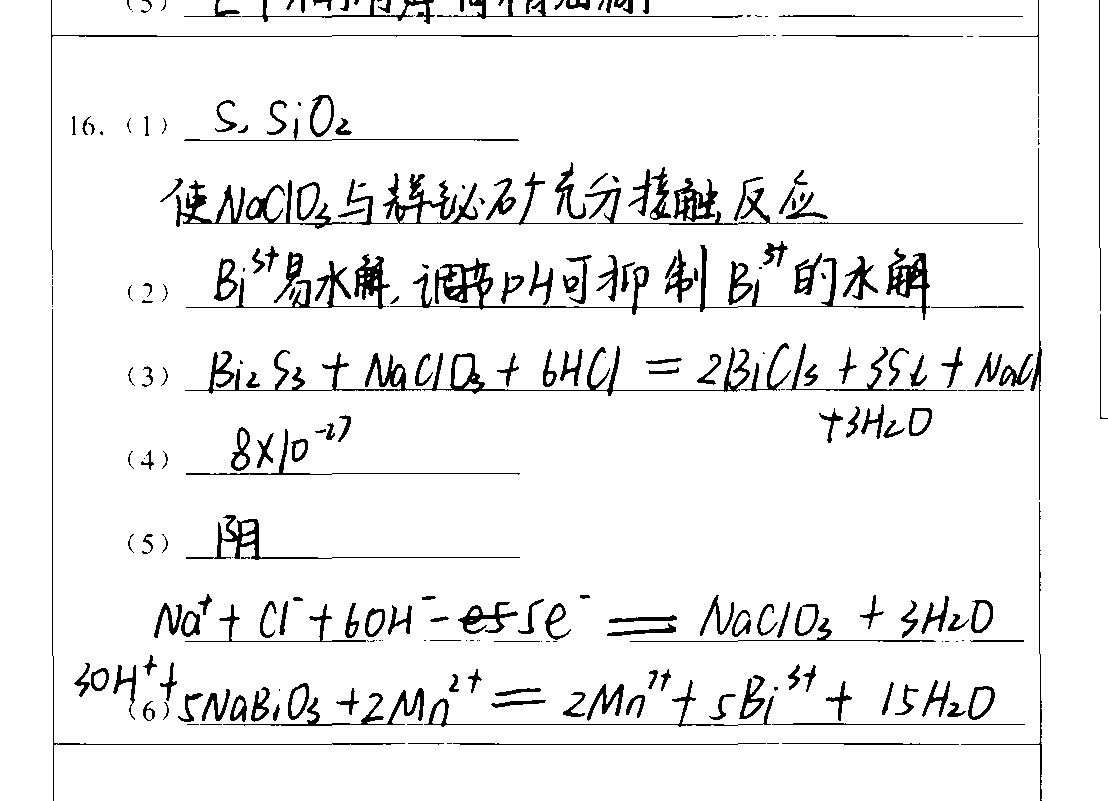 (5)
16. (1) S、SiO₂
使NaClO₃与辉铋矿充分接触反应
(2) Bi³⁺易水解,调节pH可抑制Bi³⁺的水解
(3) Bi₂S₃ + NaClO₃ + 6HCl = 2BiCl₃ + 3S↓ + NaCl
+3H₂O
(4) 8×10⁻²⁷
(5) 阴
Na⁺ + Cl⁻ + 6OH⁻ - 5e⁻ = NaClO₃ + 3H₂O
30H⁺+
(6) 5NaBiO₃ + 2Mn²⁺ = 2Mn⁷⁺ + 5Bi³⁺ + 15H₂O